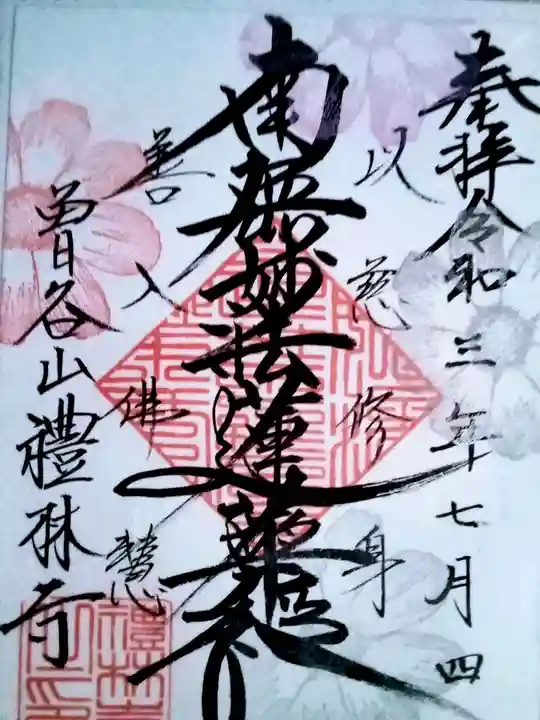 奉拝 令和三年七月四
以慈修身
南無妙法蓮華経
善入佛慧
曽谷山禮林寺